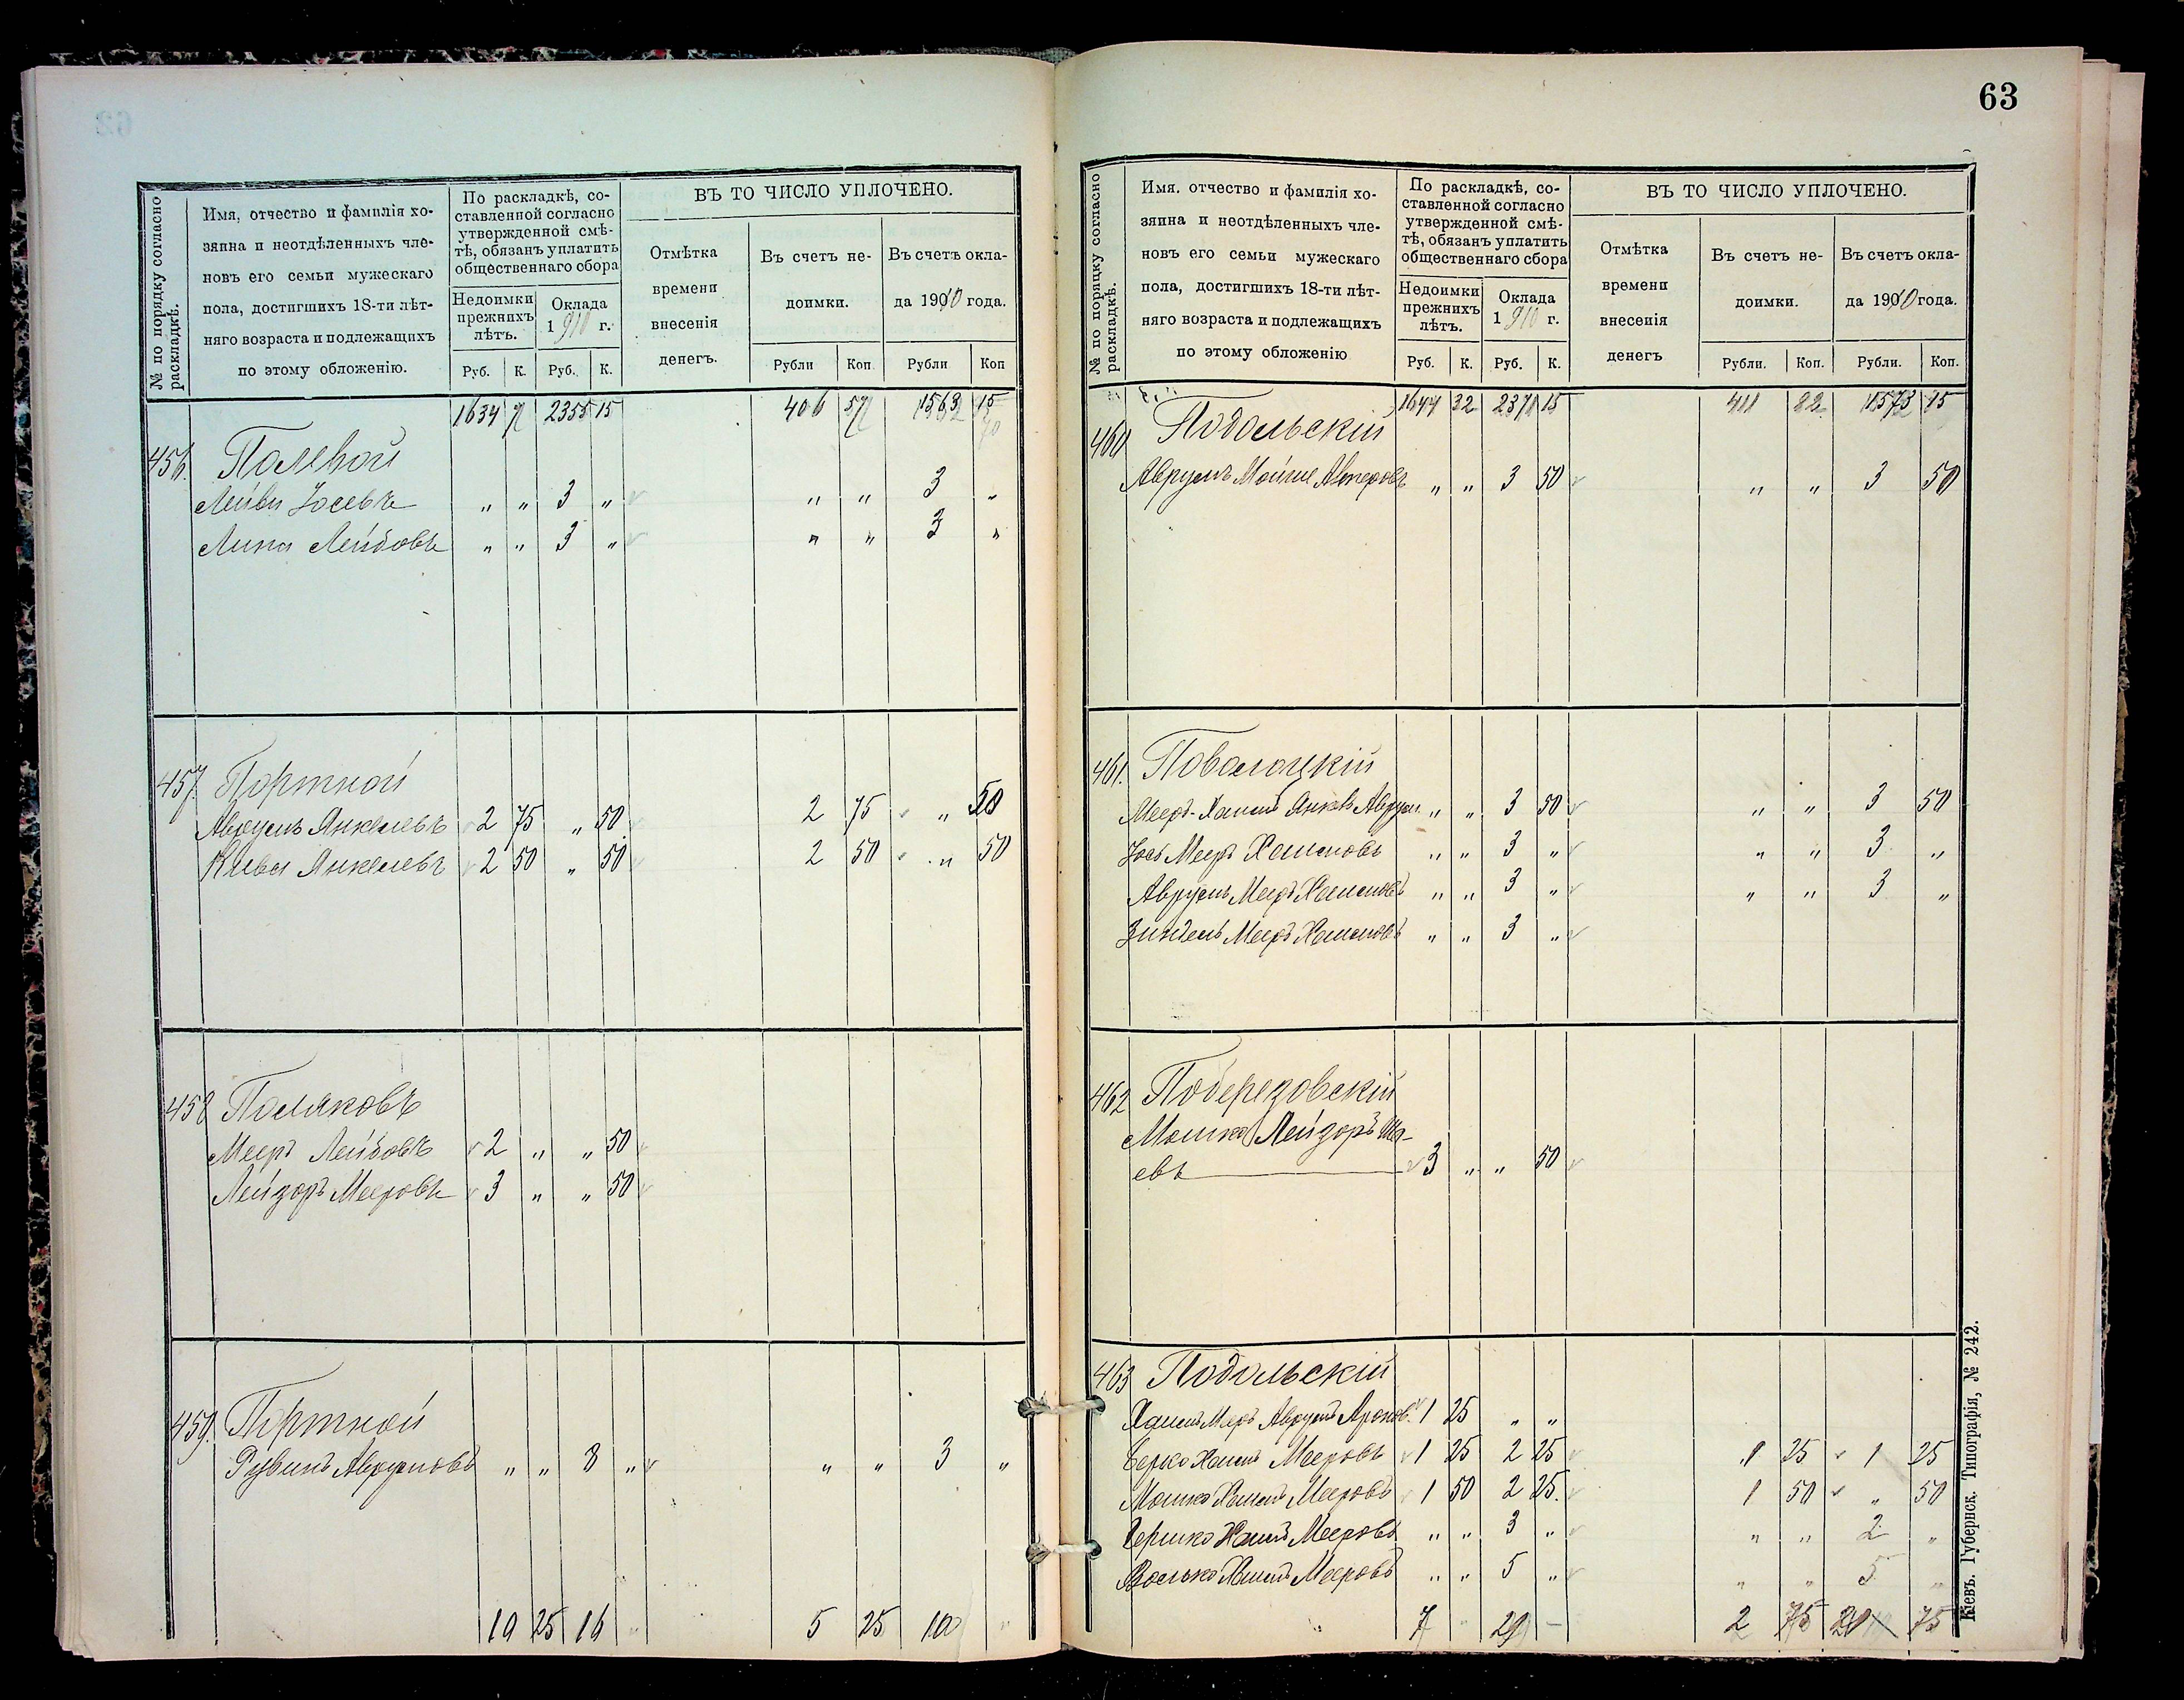 63
№ по порядку согласно раскладкѣ.
Имя, отчество и фамилія хо-
зяина и неотдѣленныхъ чле-
новъ его семьи мужескаго
пола, достигшихъ 18-ти лѣт-
няго возраста и подлежащихъ
по этому обложенію.
По раскладкѣ, со-
ставленной согласно
утвержденной смѣ-
тѣ, обязанъ уплатить
общественнаго сбора
Недоимки прежнихъ лѣтъ.
Оклада 1910 г.
Руб. К. Руб. К.
ВЪ ТО ЧИСЛО УПЛОЧЕНО.
Отмѣтка времени внесенія денегъ.
Въ счетъ не-доимки.
Въ счетъ окла-да 1910 года.
Рубли Коп. Рубли Коп
1634 7 2355 15 406 57 1563 15
70
456. Полевой
Лейви Іосевъ " " 3 " " " 3 "
Липа Лейбовъ " " 3 " " " 3 "
457. Портной
Аврумъ Янкелевъ 2 75 " 50 2 75 " 50
Кива Янкелевъ 2 50 " 50 2 50 " 50
458 Поляковъ
Мееръ Лейбовъ 2 " " 50
Лейзоръ Мееровъ 3 " " 50
459. Портной
Рувинъ Аврумовъ " " 3 " " " 3 "
10 25 16 " 5 25 10 "
№ по порядку согласно раскладкѣ.
Имя, отчество и фамилія хо-
зяина и неотдѣленныхъ чле-
новъ его семьи мужескаго
пола, достигшихъ 18-ти лѣт-
няго возраста и подлежащихъ
по этому обложенію
По раскладкѣ, со-
ставленной согласно
утвержденной смѣ-
тѣ, обязанъ уплатить
общественнаго сбора
Недоимки прежнихъ лѣтъ.
Оклада 1910 г.
Руб. К. Руб. К.
ВЪ ТО ЧИСЛО УПЛОЧЕНО.
Отмѣтка времени внесенія денегъ
Въ счетъ не-доимки.
Въ счетъ окла-да 1910 года.
Рубли. Коп. Рубли. Коп.
1644 32 2371 15 411 82 1573 15
460 Подольскій
Аврумъ Мойше " " 3 50 " " 3 50
461. Поволоцкій
Мееръ-Хаимъ Янкель Аврум. " " 3 50 " " 3 50
Іось Мееръ Хаимовъ " " 3 " " " 3 "
Аврумъ Мееръ Хаимовъ " " 3 " " " 3 "
Зиндель Мееръ Хаимовъ " " 3 "
462 Поберезовскій
Мошко Лейзоръ
евъ 3 " " 50
463 Подольскій
Хаимъ Меръ Аврумъ Аронов. 1 25 " "
Берко Хаимъ Мееровъ 1 25 2 25 1 25 1 25
Мошко Хаимъ Мееровъ 1 50 2 25. 1 50 " 50
Гершко Хаимъ Мееровъ " " 3 " " " 2 "
Волько Хаимъ Мееровъ " " 5 " " " 5 "
7 " 29 — 2 75 20 75
Кіевъ. Губернск. Типографія, № 242.